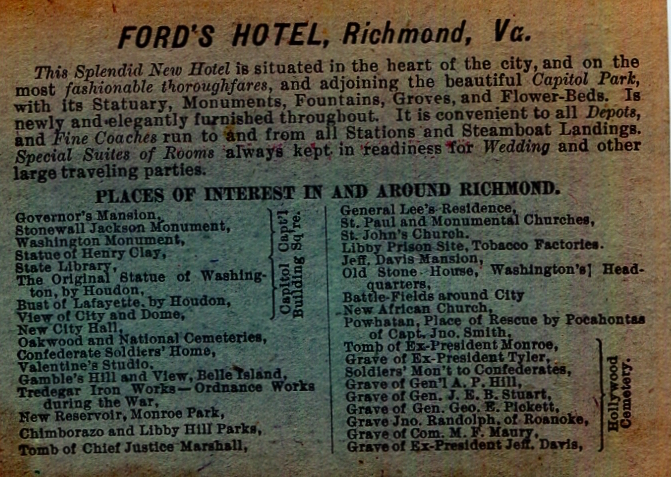 FORD'S HOTEL, Richmond, Va.
This Splendid New Hotel is situated in the heart of the city, and on the
most fashionable thoroughfares, and adjoining the beautiful Capitol Park,
with its Statuary, Monuments, Fountains, Groves, and Flower-Beds. Is
newly and elegantly furnished throughout. It is convenient to all Depots,
and Fine Coaches run to and from all Stations and Steamboat Landings.
Special Suites of Rooms always kept in readiness for Wedding and other
large traveling parties.
PLACES OF INTEREST IN AND AROUND RICHMOND.
Governor's Mansion,
Stonewall Jackson Monument,
Washington Monument,
Statue of Henry Clay,
State Library,
The Original Statue of Washing-
ton, by Houdon,
Bust of Lafayette, by Houdon,
View of City and Dome,
Capitol Capt'l
Building Sq're.
New City Hall,
Oakwood and National Cemeteries,
Confederate Soldiers' Home,
Valentine's Studio.
Gamble's Hill and View, Belle Island,
Tredegar Iron Works—Ordnance Works
during the War,
New Reservoir, Monroe Park,
Chimborazo and Libby Hill Parks,
Tomb of Chief Justice Marshall,
General Lee's Residence,
St. Paul and Monumental Churches,
St. John's Church.
Libby Prison Site, Tobacco Factories.
Jeff. Davis Mansion,
Old Stone House, Washington's] Head-
quarters,
Battle-Fields around City
New African Church,
Powhatan, Place of Rescue by Pocahontas
of Capt. Jno. Smith.
Tomb of Ex-President Monroe,
Grave of Ex-President Tyler,
Soldiers' Mon't to Confederates,
Grave of Gen'l A. P. Hill,
Grave of Gen. J. E. B. Stuart,
Grave of Gen. Geo. E. Pickett,
Grave Jno. Randolph, of Roanoke,
Grave of Com. M. F. Maury,
Grave of Ex-President Jeff. Davis,
Hollywood
Cemetery.